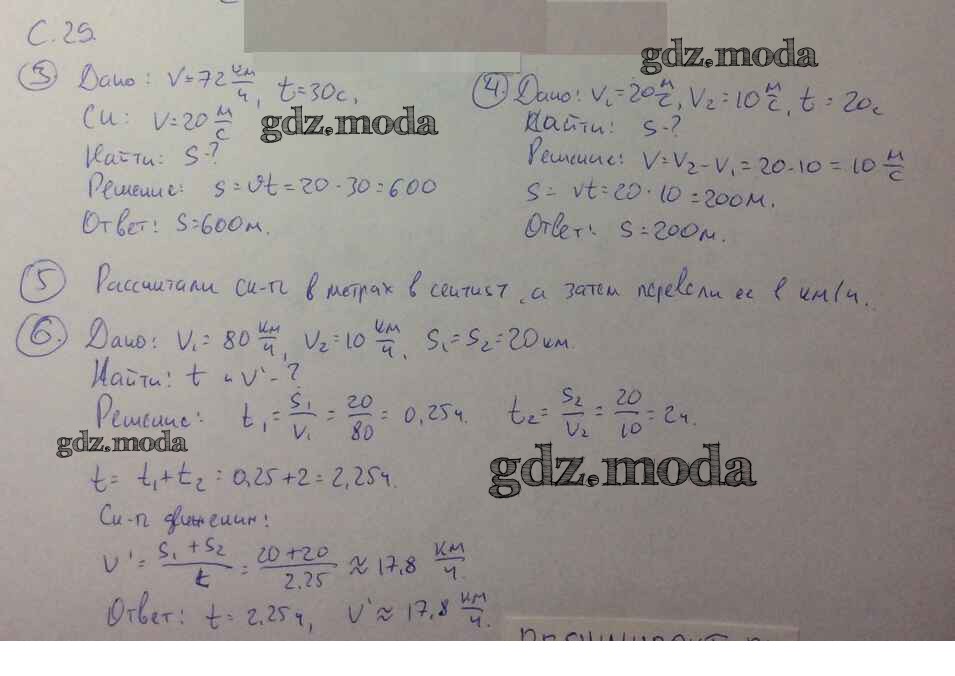 С. 29.
③ Дано: V=72 км/ч, t=30с,
СИ: V=20 м/с
Найти: S-?
Решение: S=vt=20·30=600
Ответ: S=600м.
④ Дано: V₁=20 м/с, V₂=10 м/с, t=20с
Найти: S-?
Решение: V=V₂-V₁=20-10=10 м/с
S= vt=20·10=200м.
Ответ: S=200м.
⑤ Рассчитали ск-ть в метрах в а затем перевели ее в км/ч.
⑥ Дано: V₁=80 км/ч, V₂=10 км/ч, S₁=S₂=20км.
Найти: t и V'-?
Решение: t₁= S₁/V₁ = 20/80 = 0,25ч. t₂= S₂/V₂ = 20/10 =2ч.
t= t₁+t₂=0,25+2=2,25ч.
Ск-ть движения:
V'= S₁+S₂/t = 20+20/2.25 ≈ 17,8 км/ч.
Ответ: t=2,25ч, V'≈17,8 км/ч.
gdz.moda
gdz.moda
gdz.moda
gdz.moda